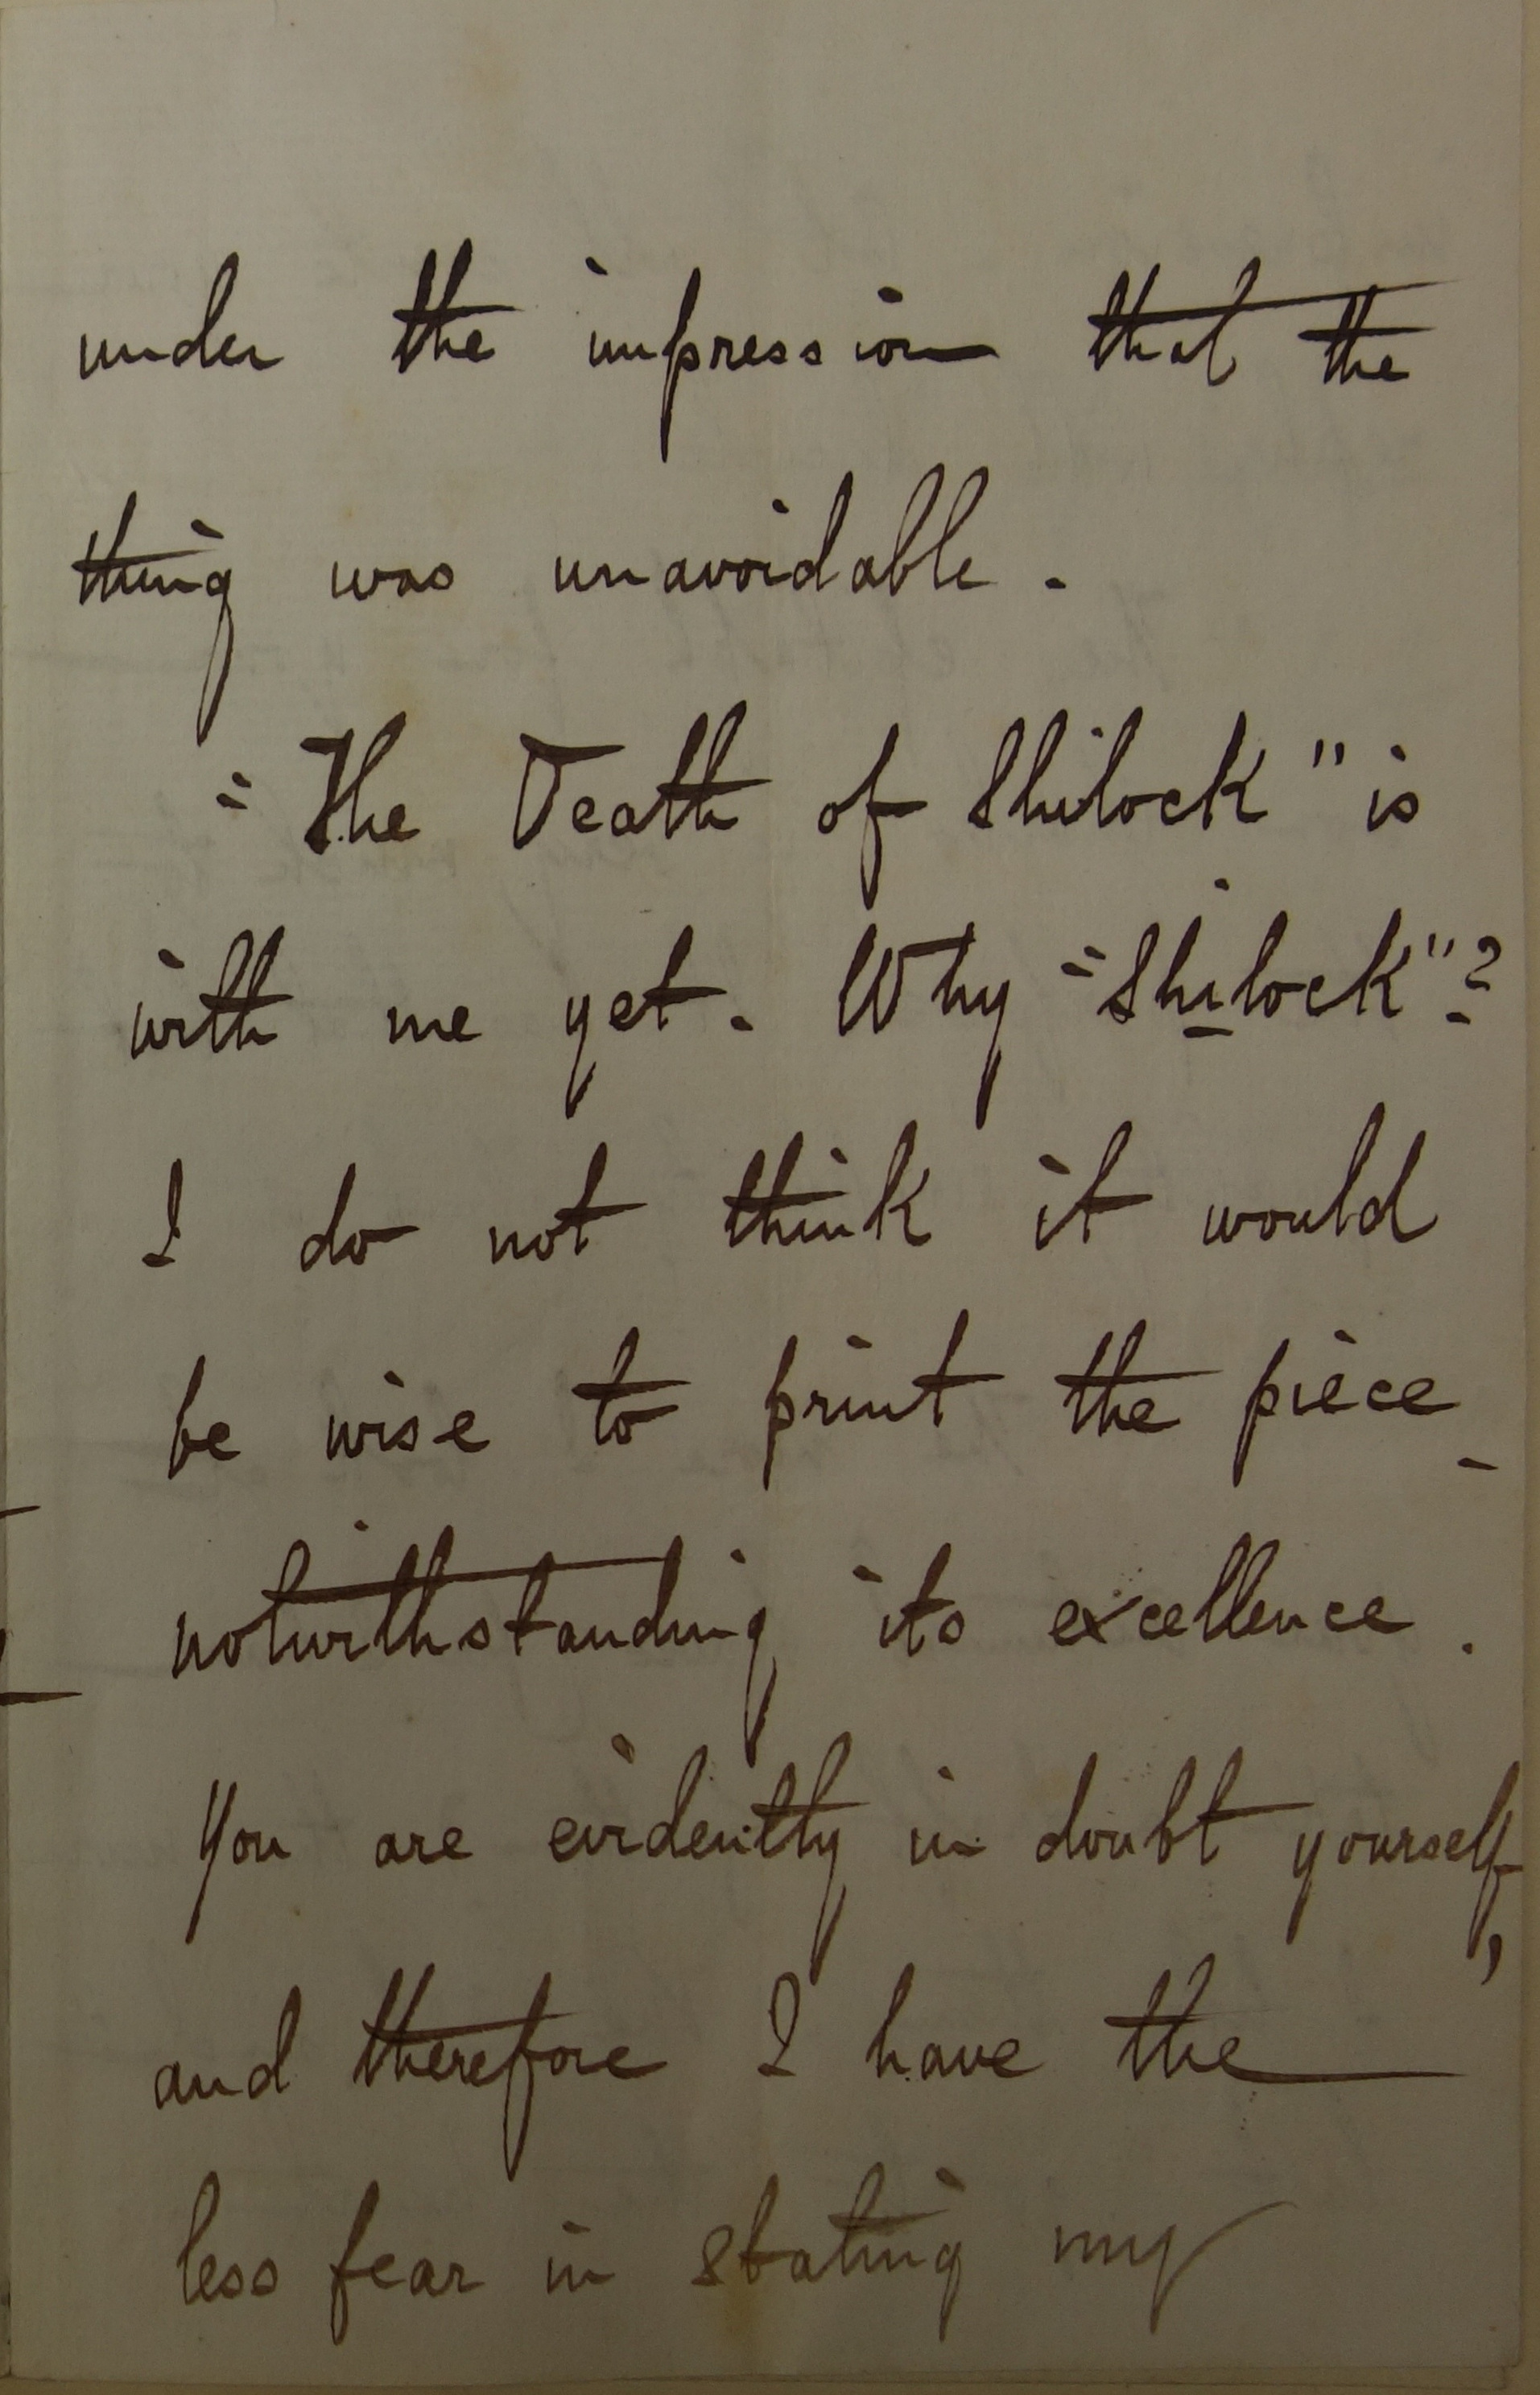 under the impression that the
thing was unavoidable.
"The Death of Shilock" is
with me yet. Why "Shilock"?
I do not think it would
be wise to print the piece_
notwithstanding its excellence.
You are evidently in doubt yourself,
and therefore I have the
less fear in stating my